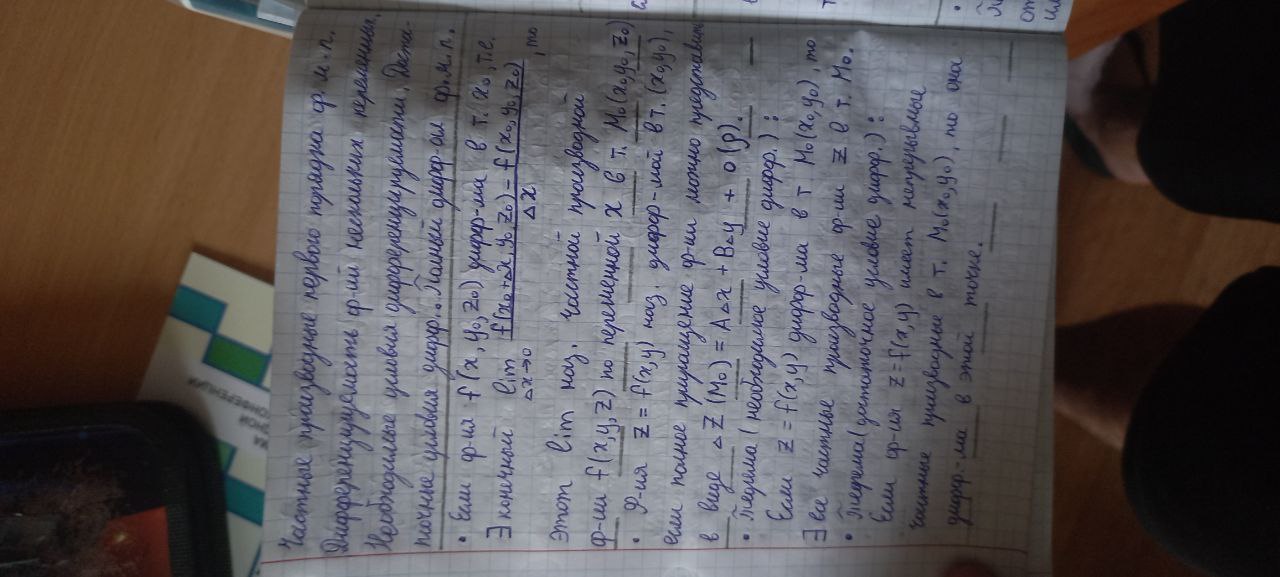 Частные производные первого порядка ф.м.п.
Дифференцируемость ф-ий нескольких переменных.
Необходимые условия дифференцируемости. Доста-
точные условия дифф. Полный дифф-ал ф.м.п.
• Если ф-ия f(x, y₀, z₀) дифф-ма в т.(x₀, т.е.
∃ конечный lim Δx→0 f(x₀+Δx, y₀, z₀) - f(x₀, y₀, z₀) / Δx, то
этот lim наз. частной производной
ф-ии f(x, y, z) по переменной x в т. M₀(x₀, y₀, z₀)
• Ф-ия z = f(x, y) наз. дифф-мой в т.(x₀, y₀),
если полное приращение ф-ии можно представить
в виде Δz(M₀) = AΔx + BΔy + o(ρ).
• Теорема (необходимое условие дифф.):
Если z = f(x, y) дифф-ма в т M₀(x₀, y₀), то
∃ все частные производные ф-ии z в т. M₀.
• Теорема (достаточное условие дифф.):
Если ф-ия z = f(x, y) имеет непрерывные
частные производные в т. M₀(x₀, y₀), то она
дифф-ма в этой точке.
КОНФЕРЕНЦИИ